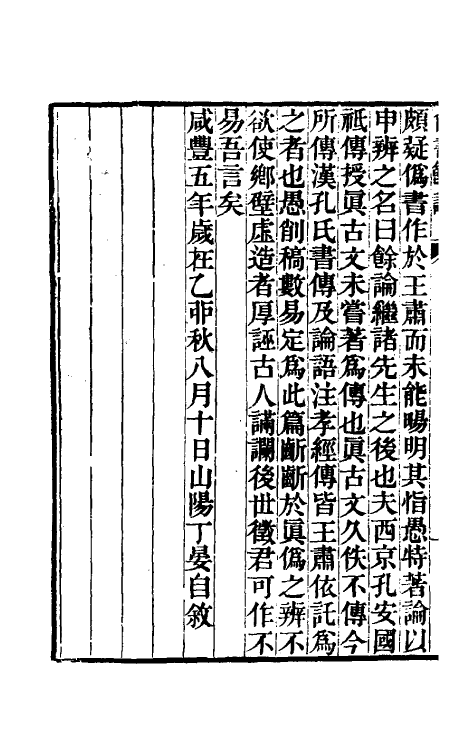 頗疑僞書作於王肅而未能暘明其恉愚特著論以
申辨之名曰餘論繼諸先生之後也夫西京孔安國
祗傳授眞古文未嘗著爲傳也眞古文久佚不傳今
所傳漢孔氏書傳及論語注孝經傳皆王肅依託爲
之者也愚削稿數易定爲此篇齗齗於眞僞之辨不
欲使鄉壁虛造者厚誣古人讕讕後世徵君可作不
易吾言矣
咸豐五年歲在乙丣秋八月十日山陽丁晏自敘